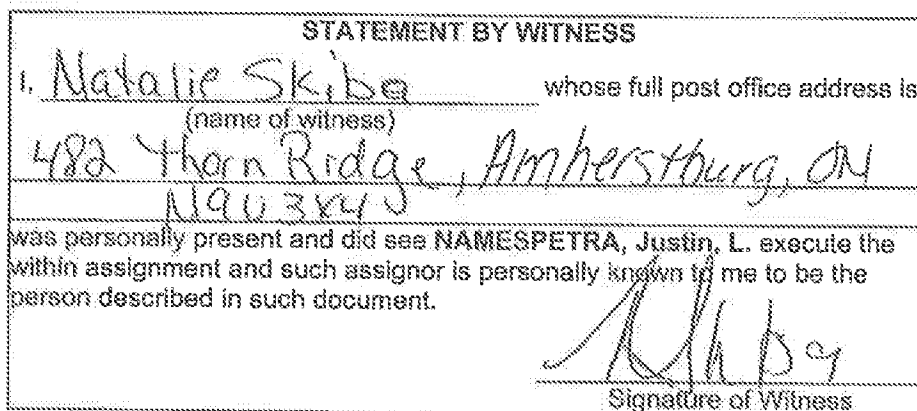 STATEMENT BY WITNESS
I, Natalie Skiba whose full post office address is
(name of witness)
482 Thorn Ridge, Amherstburg, ON
N9V 3X4
was personally present and did see NAMESPETRA, Justin, L. execute the
within assignment and such assignor is personally known to me to be the
person described in such document.
Signature of Witness